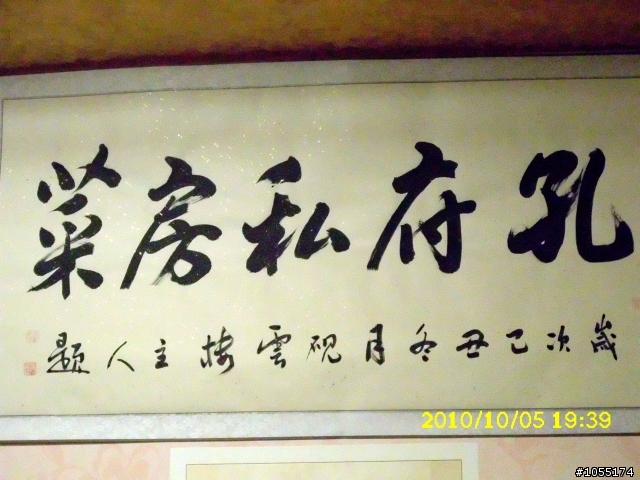 孔府私房菜
歲次己丑冬月硯雲樓主人題
2010/10/05 19:39
#1055174